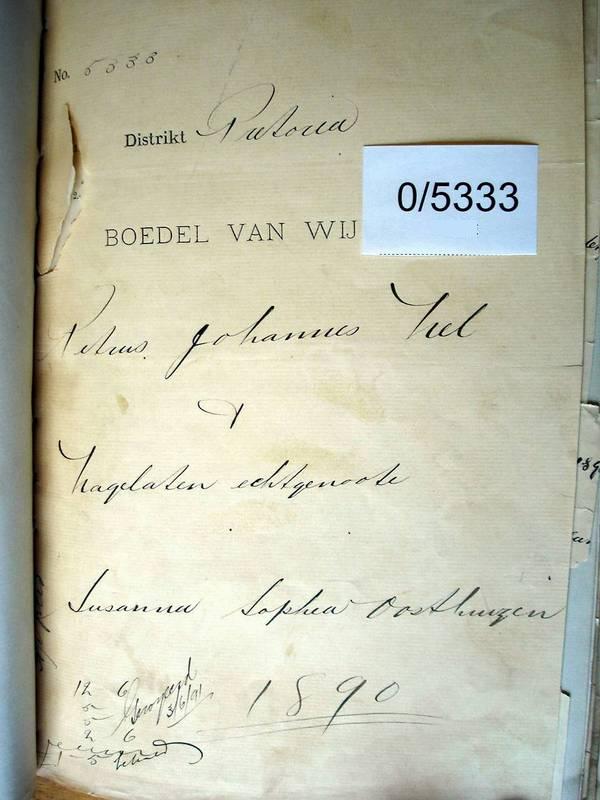 No. 5333
Distrikt Pretoria
0/5333
BOEDEL VAN WIJ
Petrus Johannes Nel
&
Nagelaten echtgenoote
Susanna Sophia Oosthuizen
1890
12 6
5
5
2 6
3/6/91